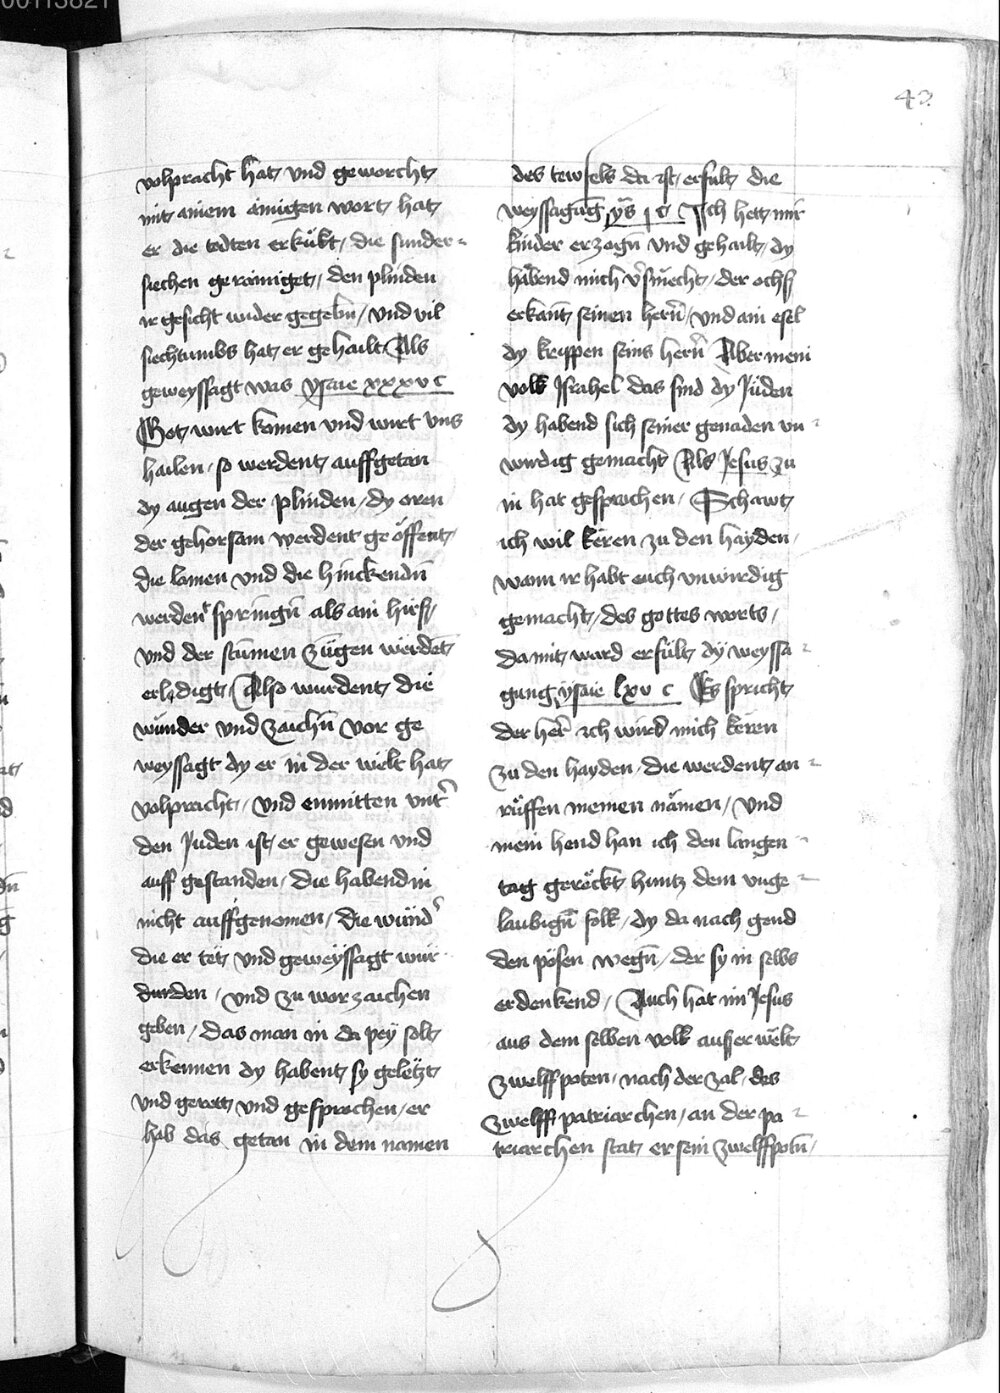 43
volpracht hat und geworcht
mit ainem ainigen wort hat
er die todten erkükt / die sunder-
siechen gerainiget / den plinden
ir gesicht wider gegebn / und vil
siechtumbs hat er gehailt Als
geweyssagt was ysaie xxxv c
Got wirt komen und wirt uns
hailen / so werdent auffgetan
dy augen der plinden / dy oren
der gehorsam werdent geöffent /
die lamen und die hinckendn̄
werdent springn̄ als ain hirß /
und der stūmen zūgen werdet
erledigt / Also wurdent die
wunder und zaichn̄ vor ge
weyssagt dy er in der welt hat
volpracht / und enmitten unt᷑
den Juden ist er gewesen und
auff gestanden / die habend in
nicht auffgenomen / die wund᷑
die er tet und geweyssagt wur
durden / und zu worzaichen
geben / das man in da pey solt
erkennen dy habent sy geletzt
und gerett und gesprochen / er
hab das getan in dem namen
des tewfels da ist erfult die
weyssagūg ys j c Ich hett mir
kinder erzogn̄ und gehailt / dy
habend mich v᷑smecht / der ochs
erkant seinen hern̄ / und ain esel
dy krippen seins hern̄ Aber mein
volk Israhel das sind dy Juden
dy habend sich seiner genaden un-
wirdig gemacht Als Jesus zu
in hat gesprochen / Schawt
ich wil keren zu den hayden /
wann ir habt euch unwirdig
gemacht / des gottes worts /
da mit ward erfült dy weyssa-
gung ysaie lxv c Es spricht
der her̄ ich wird mich keren
zu den hayden / die werdent an-
rüffen meinen namen / und
mein hend han ich den langen
tag gereckt huntz dem unge-
laubign̄ folk / dy da nach gend
den pösen wegn̄ / der sy in selbs
erdenkend / Auch hat im Jesus
aus dem selben volk ausserwelt
zwelffpoten / nach der zal / des
zwelff patriarchen / an der pa-
triarchen stat er sein zwelffpotn̄ /